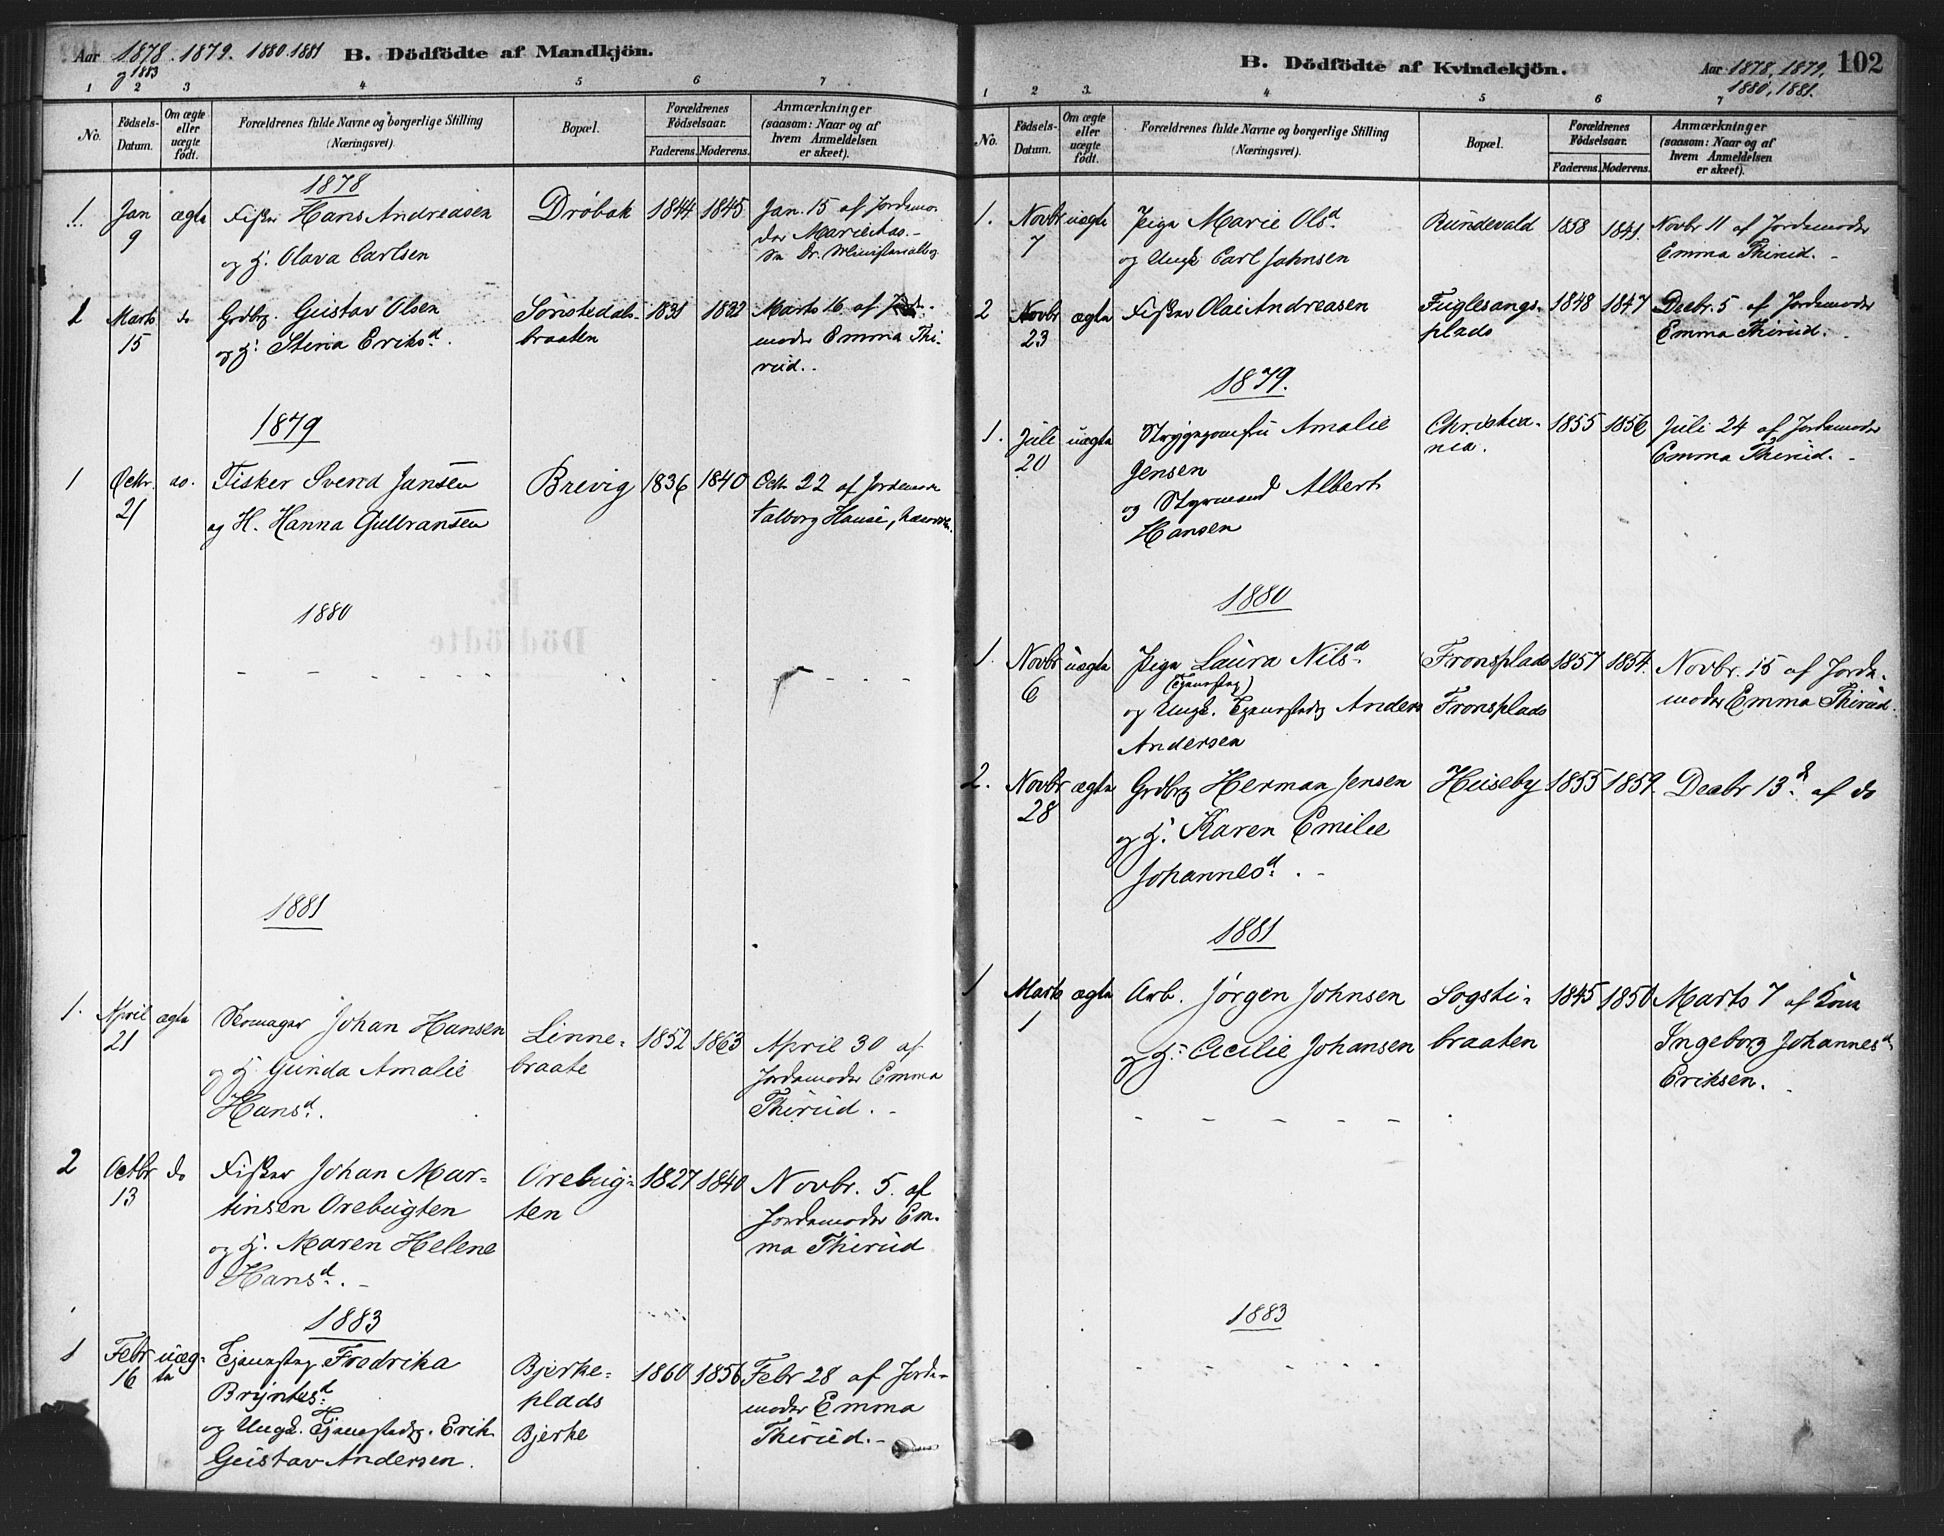 Aar 1878. 1879. 1880. 1881 B. Dödfödte af Mandkjön.
og 1883
1 2 3 4 5 6 7
No. Födsels-Datum. Om ægte eller uægte födt. Forældrenes fulde Navne og borgerlige Stilling (Næringsvei). Bopæl. Forældrenes Födselsaar. Faderens. Moderens. Anmærkninger (saasom: Naar og af hvem Anmeldelsen er skeet).
1878
1. Jan 9 ægte Fisker Hans Andreasen Dröbak 1844 1845 Jan. 15 af Jordemo-
og H. Olava Carlsen
der Marie Aas.-
2 Marts 15 do Grdbrg. Gustav Olsen Sönstedals- 1831 1832 Marts 16 af Jorde-
og H. Stena Eriksd. braaten moder Emma Thi-
rud.-
1879
1 Octbr. 21 do. Fisker Svend Jansen Brevig 1836 1840 Octb 22 af Jordemoder
og H. Hanna Gulbransen Valborg
1880
1881
1. April 21 ægte Skomager Johan Hansen Linne- 1852 1863 April 30 af
og H. Gunda Amalie braate Jordemoder Emma
Hansd. Thirud.-
2 Octbr 13 do Fisker Johan Mar- Orebug- 1827 1840 Novbr. 5. af
tinsen Orebugten ten Jordemoder Em-
og H. Maren Helene ma Thirud
Hansd.-
1883
1 Febr 16 uæg-te Tjenestpg. Fredrika Bjerke- 1860 1856 Febr 28 af Jorde-
Bryntesd. plads moder Emma
og Ungk. Tjenestedrg. Erik Bjerke Thirud.-
Gustav Andersen.
B. Dödfödte af Kvindekjön. Aar 1878, 1879, 102
1880, 1881.
1 2 3. 4 5 6 7
No. Födsels-Datum. Om ægte eller uægte födt. Forældrenes fulde Navne og borgerlige Stilling (Næringsvei). Bopæl. Forældrenes Födselsaar. Faderens. Moderens. Anmærkninger (saasom: Naar og af hvem Anmeldelsen er skeet).
1. Novbr 7 uægte Pige Marie Olsd. Rundevald 1858 1841. Novbr 11 af Jordemoder
og Ungk. Carl Johnsen Emma Thirud.-
2 Novbr 23 ægte Fisker Olai Andreasen Fuglesangs- 1848 1847 Decbr. 5 af Jordemoder
plads Emma Thirud.
1879.
1. Juli 20 uægte Strygejomfru Amalie Christia- 1855 1856 Juli 24 af Jordemoder
Jensen nia. Emma Thirud.-
og Styrmand Albert
Hansen
1880
1. Novbr 6 uægte Pige Laura Nilsd. Fronsplads 1857 1854. Novbr. 15 af Jorde-
og Ungk. Tjenestedrg Anders Fronsplads moder Emma Thirud.
Andersen
2. Novbr 28 ægte Grdbrg Herman Jensen Huseby 1855 1859. Decbr 13d. af do
og H. Karen Emilie
Johannesd.-
1881
1 Marts 1 ægte Arb. Jörgen Johnsen Sogsti- 1845 1850 Marts 7 af Kone
og H. Cecilie Johansen braaten Ingeborg Johannesd.
Eriksen.
1883